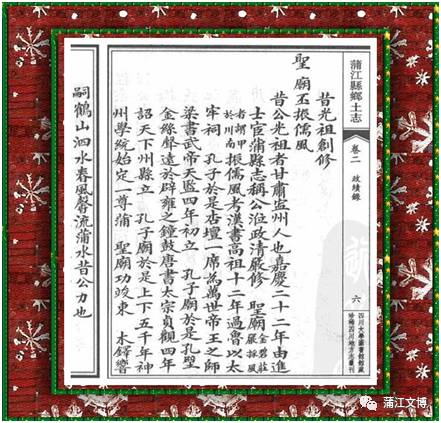 蒲江縣鄉土志 卷二 政績錄 六
四川大學圖書館館藏
珍稀四川地方志叢刊
昔光祖創修
聖廟丕振儒風
昔公光祖者甘肅州人也嘉慶二十二年由進
士宦蒲縣志稱公涖政清嚴修 聖廟金碧莊嚴採風
者甲於川南振儒風考漢書高祖十二年過魯以太
牢祠 孔子於是杏壇一席為萬世帝王之師
梁書武帝天監四年初立 孔子廟於是孔聖
金絲聲遠於辟雍之鐘鼓唐書太宗貞觀四年
詔天下州縣立 孔子廟於是上下五千年神
州學統始定一尊蒲 聖廟功竣東 木鐸響
嗣鶴山泗水春風馨流蒲水昔公力也
蒲江文博